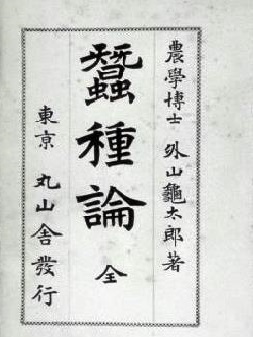 農學博士 外山龜太郎著
蠶種論 全
東京 丸山舍發行